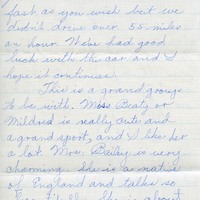 fast as you wish but we
didn't drive over 55 miles
an hour. We've had good
luck with the car and I
hope it continues.
This is a grand group
to be with. Miss Beaty or
Mildred is really cute and
a grand sport, and I like her
a lot. Mrs. Bailey is very
charming. She is a native
of England and talks so
She is about